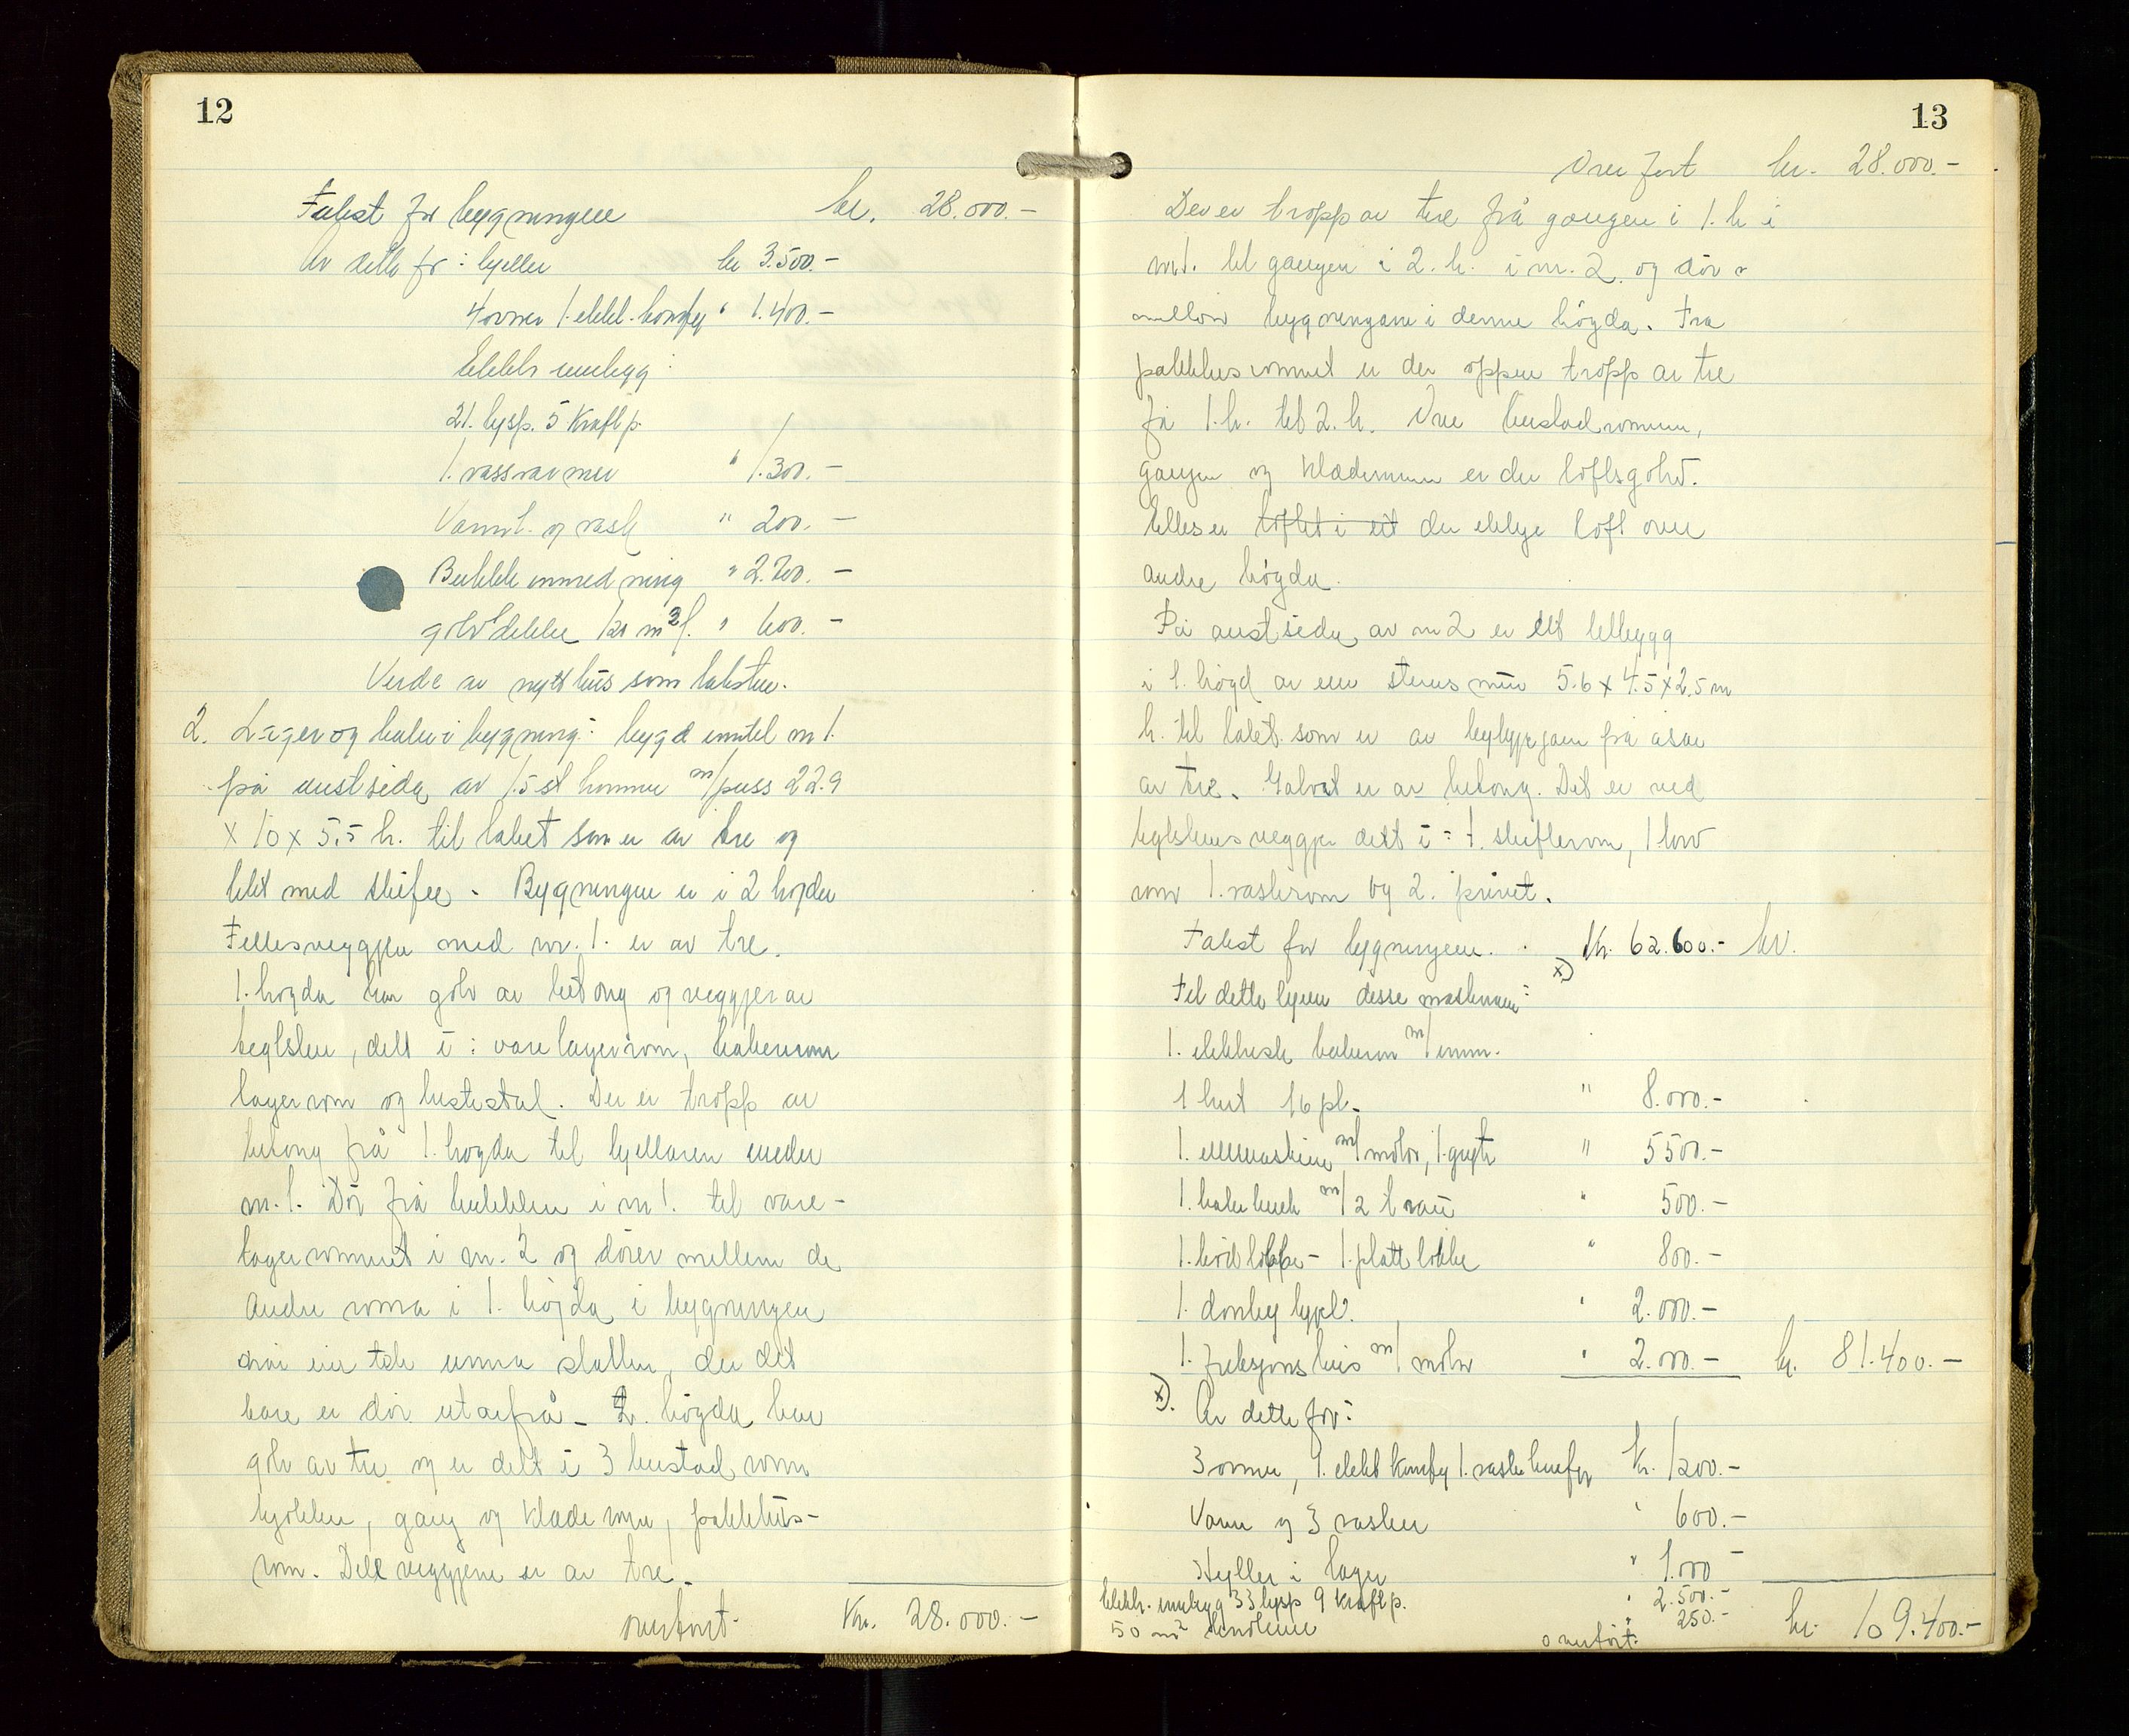 12
Takst for bygningen kr. 28.000.-
Av dette for: kjeller kr 3.500.-
4 ovner 1 elekt. komfyr " 1.400.-
Elektr innlegg:
21. lysp. 5 kraftp.
1. vassvarmer " 1.300.-
Vannl. og vask " 200.-
Butikk innredning " 2.700.-
golvdekke 120 m2 l. " 600.-
Verde av nytt hus som taksten.
2. Lager og bakeri bygning: bygd inntil nr 1.
på austsida av 1.5 st hommer m/puss 22.9
x 10 x 5.5 h. til taket som er av tre og
tekt med skifer. Bygningen er i 2 høgder
Fellesveggjen med nr. 1. er av tre.
1. høgda har golv av betong og veggjer av
teglstein, delt i: varelagerrom, bakerrom
lagerrom og hestestal. Der er tropp av
betong frå 1. høgda til kjellaren under
nr. 1. Dör frå butikken i nr 1. til vare-
lagerommet i nr. 2 og dörer mellem de
andre roma i 1. högda i bygningen
når ein tek unna stallen, der det
bare er dör utanfrå. 2. högda har
golv av tre og er delt i 3 bustad rom
kjökken, gang og kläderom, pakkhus-
rom. Dele veggjene er av tre.
overfört. Kr. 28.000.-
13
Overfört kr. 28.000.-
Der er tropp av tre frå gangen i 1. h i
nr 1. til gangen i 2. h. i nr. 2 og dör
mellom bygningane i denne högda. Fra
pakkhusrommet er der oppen tropp av tre
frå 1. h. til 2. h. Over bustadromma,
gangen og kläderommen er der loftsgolv.
Elles er loftet i eit der ekkje loft over
andre högda.
På austsida av nr 2 er ett tilbygg
i 1. högd av ein steins mur 5.6 x 4.5 x 2.5 m
h. til taket som er av bylgjejarn på åsar
av tre. Golvet er av betong. Det er ved
teglsteins veggjer delt i: 1. skifterom, 1
rom 1. vaskerom og 2. privet.
Takst for bygningen. Kr. 62.600.- kr.
x)
Til dette kjem desse maskinane:
1. elektrisk bakerovn m/ 
1 16 pl. " 8.000.-
1. eltemaskine m/motor, 1. gryte " 5500.-
1. bakebenk m/2 trau " 500.-
1. - 1. platt " 800.-
1. donkey kjel. " 2.000.-
1. m/ motor " 2.000.- kr. 81.400.-
x). Av dette for:
3 ovner, 1. elekt komfyr 1. vaske Kr. 1200.-
Vann og 3 vasker " 600.-
Hyller i lager " 1.000 -
Elektr. innlegg 33 lysp 9 kraftp. " 2.500.-
50 m2 linoleum " 250.-
overfört: kr. 109.400.-